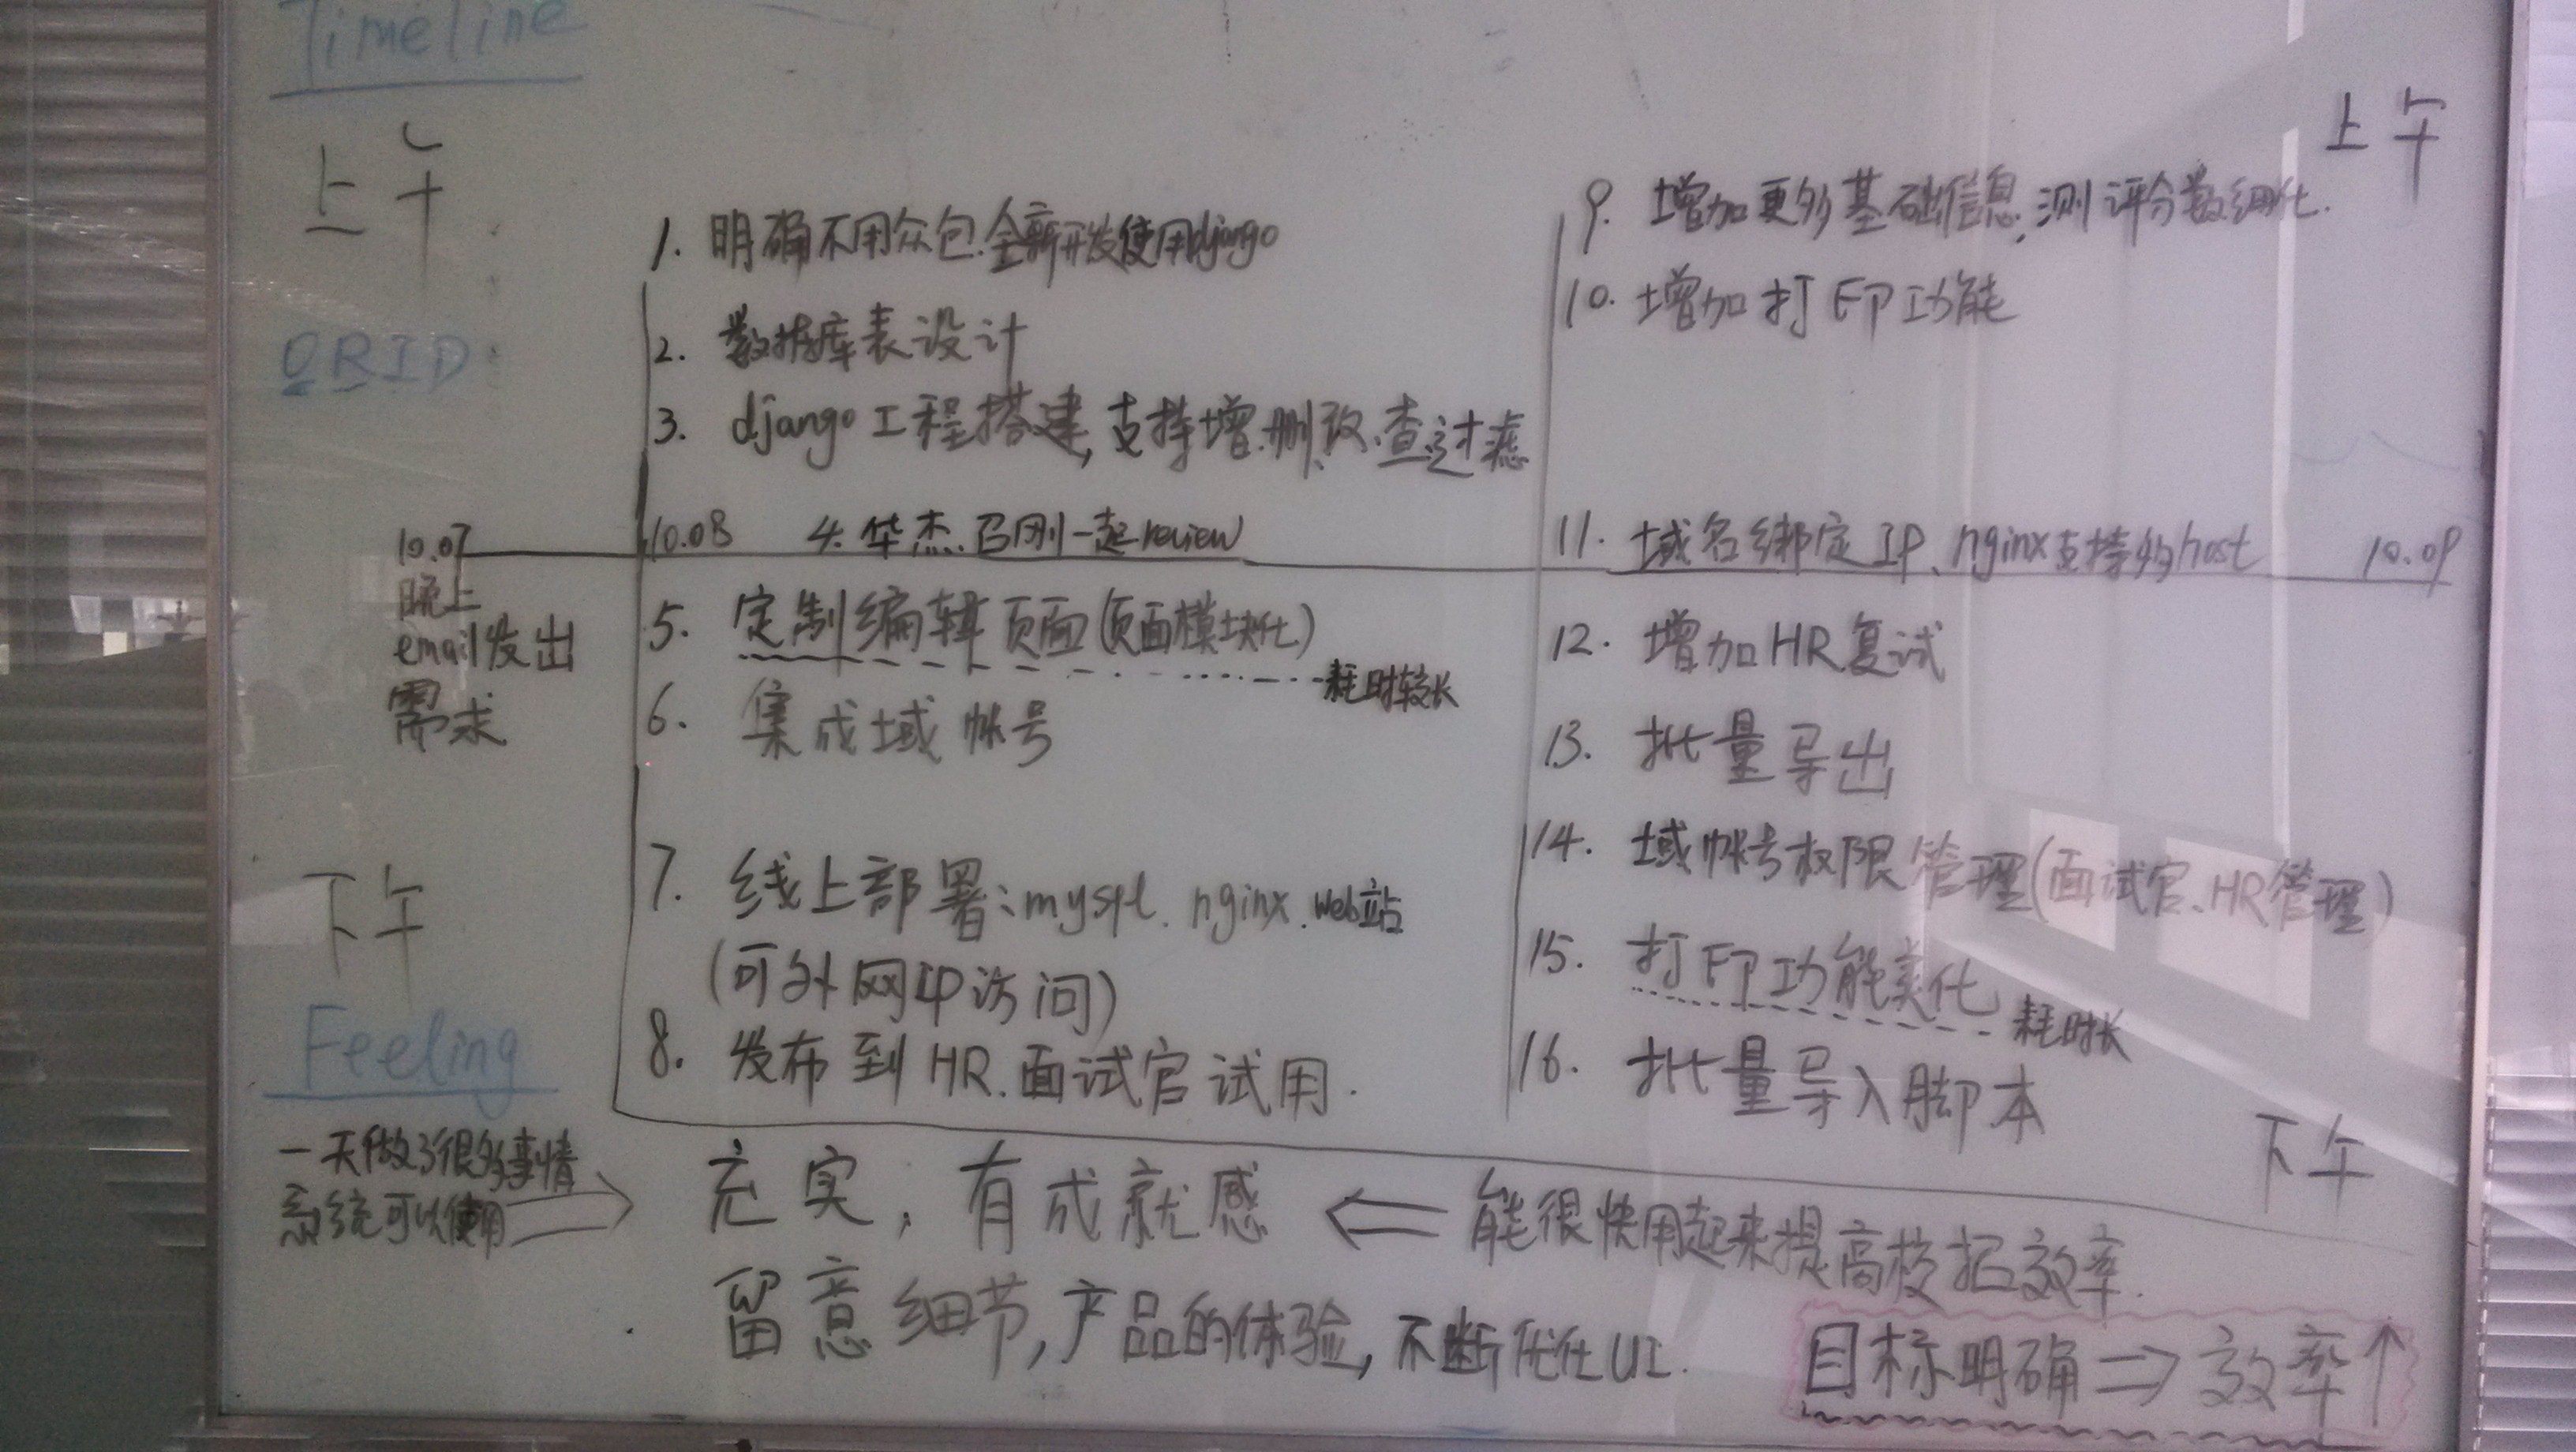 Timeline
上午
ORID
1. 明确不用众包.全新开发使用django
2. 数据库表设计
3. django工程搭建,支持增.删.改.查.过滤
10.07
晚上
email发出
需求
10.08 4.华杰.召刚一起review
5. 定制编辑页面(页面模块化)
耗时较长
6. 集成域帐号
下午
7. 线上部署:mysql. nginx. web站
(可外网IP访问)
8. 发布到HR.面试官试用.
上午
9. 增加更多基础信息,测评分数细化.
10. 增加打印功能
11. 域名绑定IP、nginx支持多host
10.09
12. 增加HR复试
13. 批量导出
14. 域帐号权限管理(面试官、HR管理)
15. 打印功能美化
耗时长
16. 批量导入脚本
下午
Feeling
一天做了很多事情
系统可以使用 ⇒
充实,有成就感
⇐ 能很快用起来提高校招效率.
留意细节,产品的体验,不断优化UI.
目标明确 ⇒ 效率↑